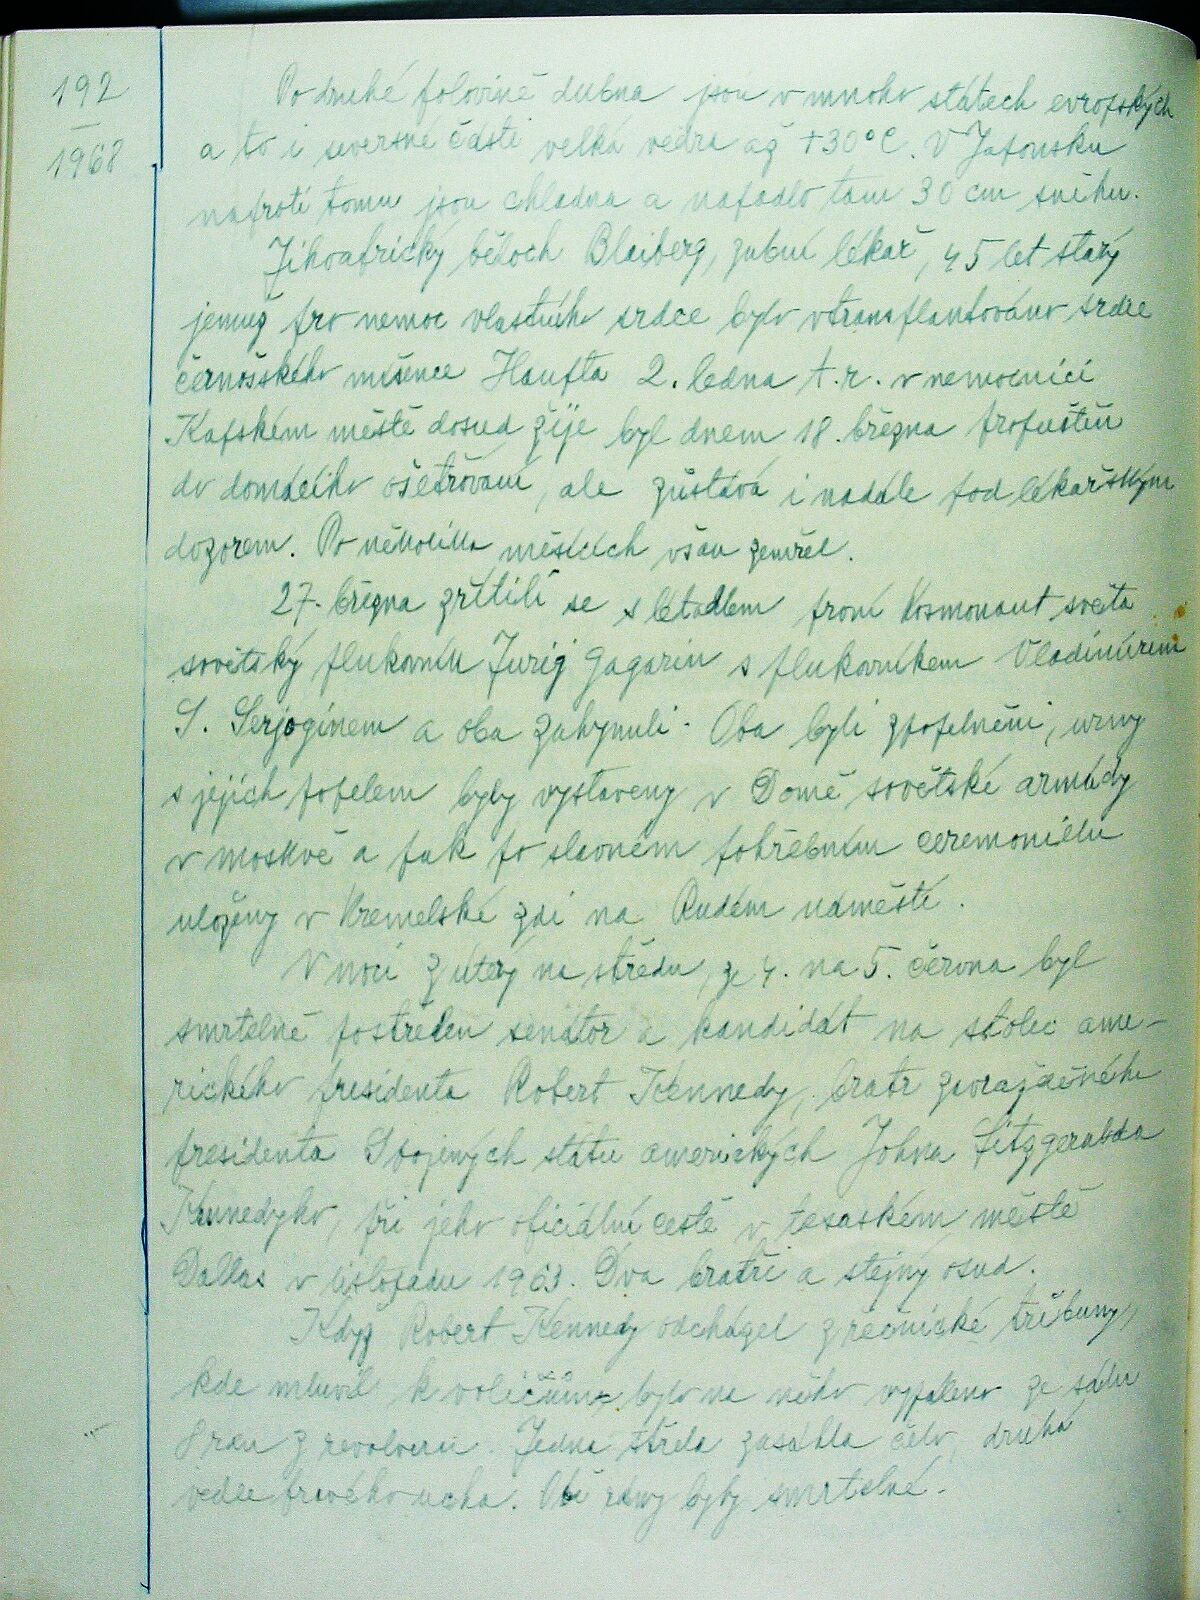 192
1968
Po druhé polovině dubna jsou v mnoho státech evropských
a to i severské části velká vedra až +30°C. V Japonsku
naproti tomu jsou chladna a napadlo tam 30 cm sněhu.
Jihoafrický běloch Blaiberg, zubní lékař, 45 let starý
jemuž pro nemoc vlastního srdce bylo vtransplantováno srdce
černošského míšence Haupta 2. ledna t.r. v nemocnici
Kapském městě dosud žije byl dnem 18. března propuštěn
do domácího ošetřování, ale zůstává i nadále pod lékařským
dozorem. Po několika měsících však zemřel.
27. března zřítili se s letadlem první kosmonaut světa
sovětský plukovník Jurij Gagarin s plukovníkem Vladimírem
S. Serjoginem a oba zahynuli. Oba byli zpopelněni, urny
s jejich popelem byly vystaveny v Domě sovětské armády
v Moskvě a pak po slavném pohřebním ceremoniélu
uloženy v Kremelské zdi na Rudém náměstí.
V noci z úterý na středu, ze 4. na 5. června byl
smrtelně postřelen senátor a kandidát na stolec ame-
rického presidenta Robert Kennedy, bratr zavražděného
presidenta Spojených států amerických Johna Fitzgeralda
Kennedyho, při jeho oficiální cestě v texaském městě
Dallas v listopadu 1963. Dva bratři a stejný osud.
Když Robert Kennedy odcházel z řečnické tribuny,
kde mluvil k voličům bylo na něho vypáleno ze sálu
8 ran z revolveru. Jedna střela zasáhla čelo, druhá
vedle pravého ucha. Obě rány byly smrtelné.